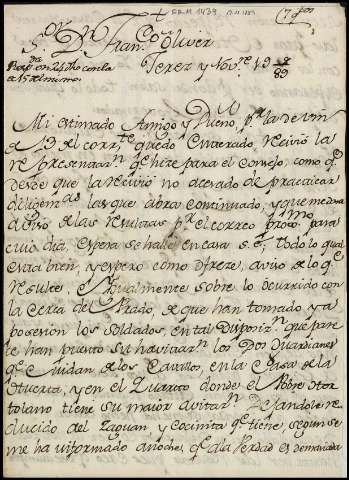 FRM 1439
Sor Dn Franco Oliver
Jerez y Novre 19
89
Mi estimado Amigo y Dueño, pr la de Vm
13 del corrte quedo enterado, recivió la
representan qe hize para el Consejo, como qe
desde que la recivió no a cesado de practicar
diligens las que abra continuado, y que me dara
aviso de las resultas pr el correo proxmo para
cuio dia, espera se halle en casa S. E. Todo lo qual
esta bien, y espero como ofreze, aviso de lo qe
resulte. Igualmente sobre lo ocurrido con
la Cerca del Prado, de que han tomado ya
posesion los Soldados, en tal disposizn que pare
te han puesto su havitazn los Dos Guardianes
qe Cuidan de los Cavallos, en la Casa de la
Huerta, y en el Quarto donde el Pobre Hor
tolano tiene su maior avitazn Dejandole re
ducido del Zaguan, y Cocinita qe tiene, segun se
me ha informado anoche, qe a la Verdad es demasiada